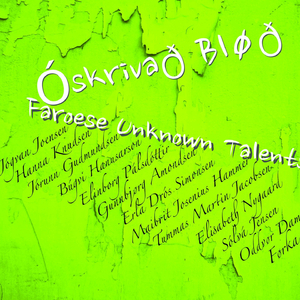 Óskrivað Bløð
Faroese Unknown Talent
Jógvan Joensen
Hanna Knudsen
Jórunn Gudmundsen
Búgvi Hanusarson
Elinborg Pálsdóttir
Gunnbjørg Amondsen
Erla Drós Simonsen
Maibrit Josenius Hammer
Tummas Martin Jacobsen
Elisabeth Nygaard
Sólva Jensen
Oddvør Dam
Forka